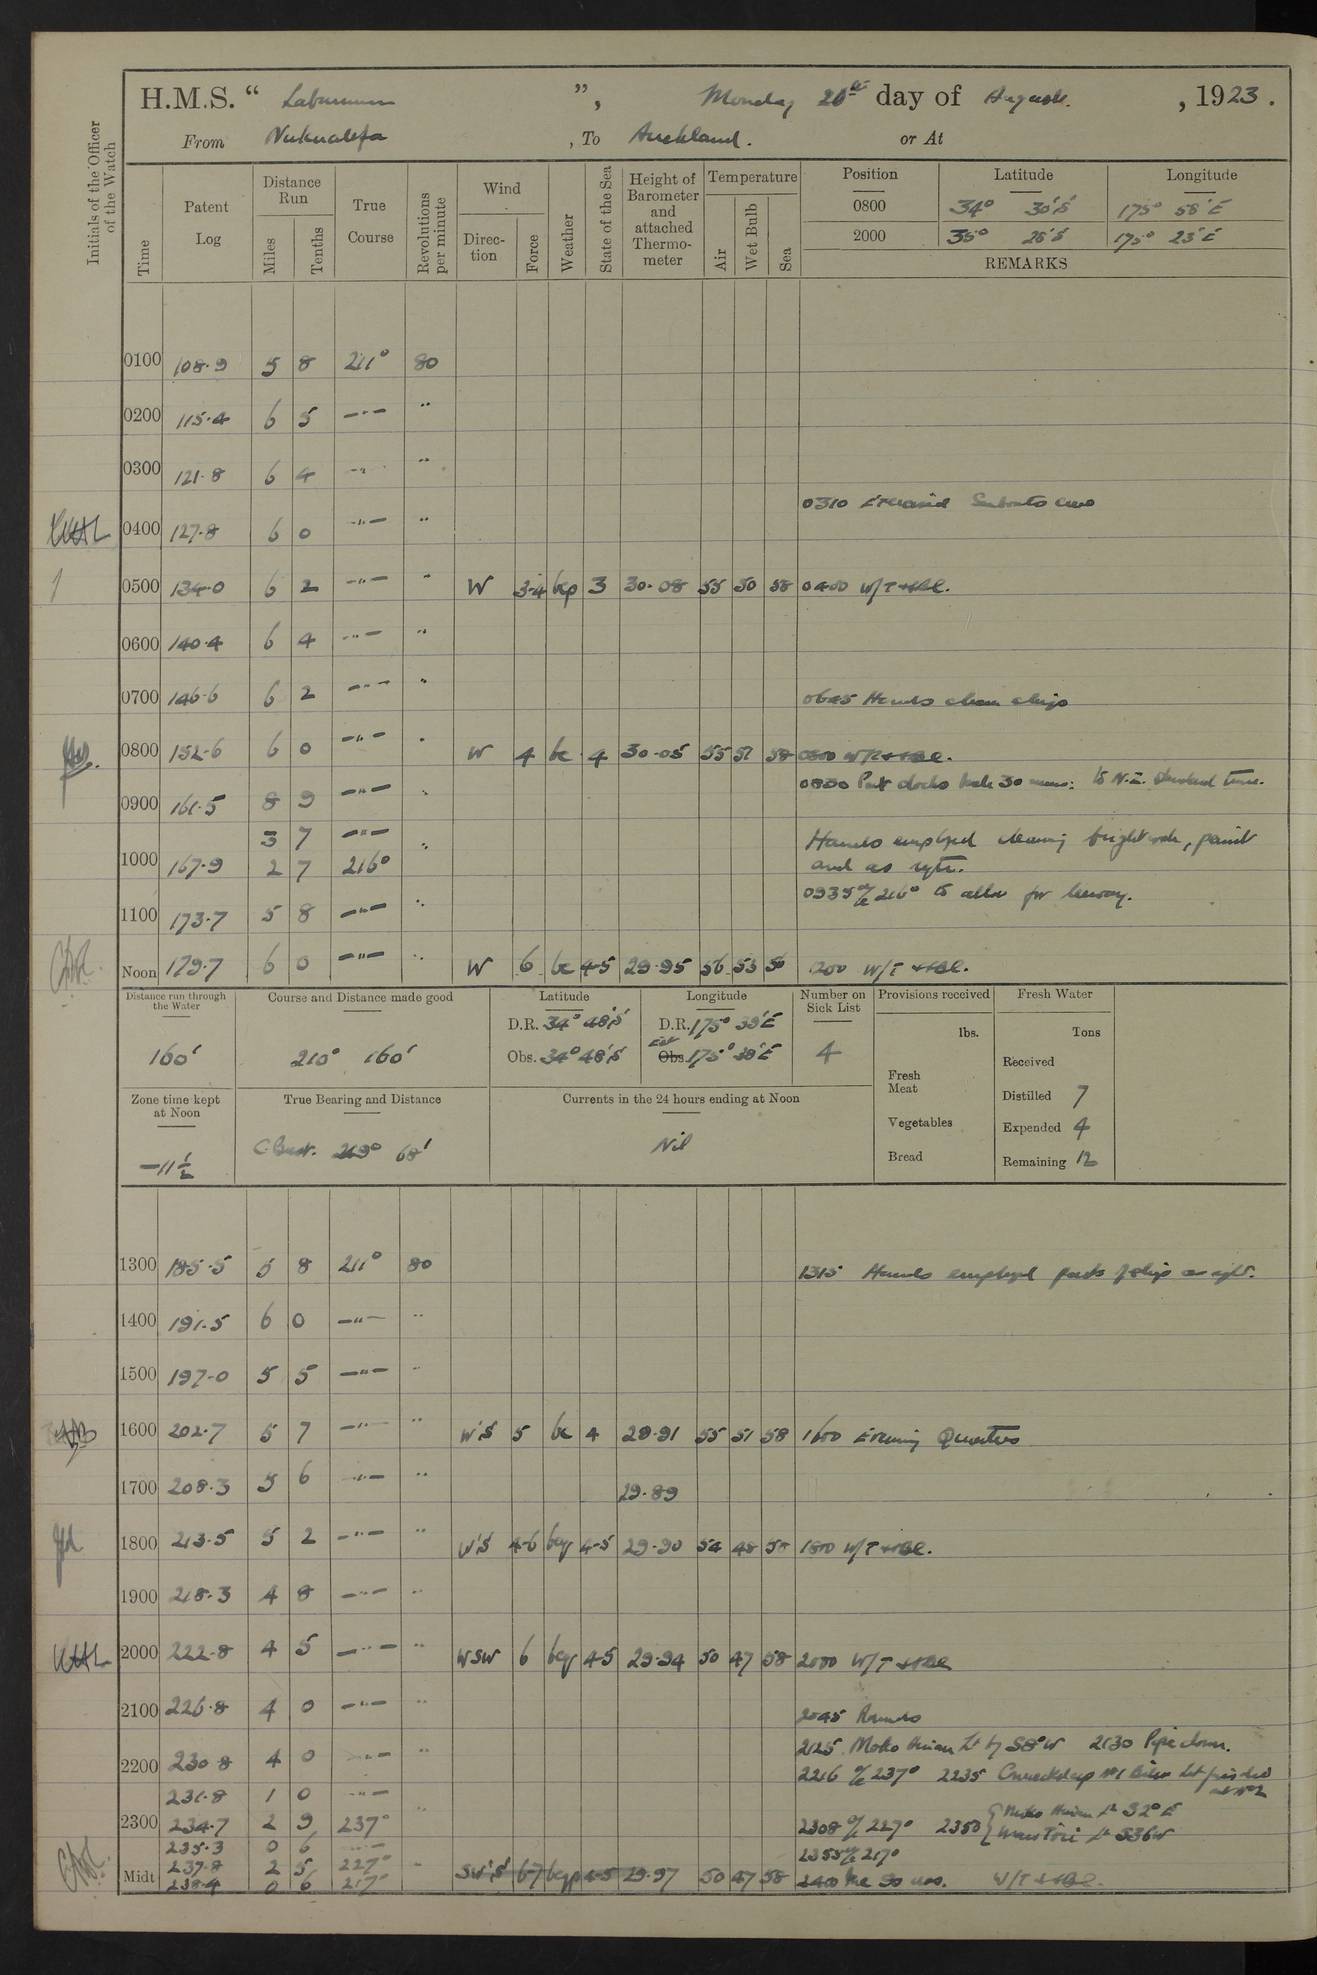 H.M.S. " Laburnum ", Monday 20th day of August, 1923.
From Nukualofa, To Auckland. or At
Initials of the Officer of the Watch
Time
Patent Log
Distance Run
Miles
Tenths
True Course
Revolutions per minute
Wind
Direction
Force
Weather
State of the Sea
Height of Barometer and attached Thermometer
Temperature
Air
Wet Bulb
Sea
Position Latitude Longitude
0800 34° 30'S 175° 58'E
2000 35° 28'S 175° 23'E
REMARKS
0100 108.9 5 8 211° 80
0200 115.4 6 5 —"— "
0300 121.8 6 4 —"— "
0310 Exercised
0400 127.8 6 0 —"— "
0500 134.0 6 2 —"— " W 3-4 bcp 3 30.08 55 50 58 0400 W/T
0600 140.4 6 4 —"— "
0700 146.6 6 2 —"— " 0645 Hands clean ship
0800 152.6 6 0 —"— " W 4 bc 4 30.05 55 51 58 0800 W/T
0830 Put clocks back 30 mins: to N.Z. standard time.
0900 161.5 8 9 —"— "
3 7 —"—
Hands employed cleaning brightwork, paint
1000 167.9 2 7 216° "
and as reqte.
0935 a/c 216° to allow for leeway.
1100 173.7 5 8 —"— "
Noon 179.7 6 0 —"— " W 6 bc 4-5 29.95 56 53 56 1200 W/T
Distance run through the Water
160'
Course and Distance made good
210° 160'
Latitude
D.R. 34° 48'S
Obs. 34° 48'S
Longitude
D.R. 175° 39'E
Est Obs. 175° 38'E
Number on Sick List
4
Provisions received
lbs.
Fresh Meat
Vegetables
Bread
Fresh Water
Tons
Received
Distilled 7
Expended 4
Remaining 12
Zone time kept at Noon
—11½
True Bearing and Distance
68'
Currents in the 24 hours ending at Noon
Nil
1300 185.5 5 8 211° 80 1315 Hands employed parts of ship as
1400 191.5 6 0 —"— "
1500 197.0 5 5 —"— "
1600 202.7 5 7 —"— " W'S 5 bc 4 29.91 55 51 58 1600 Evening Quarters
1700 208.3 5 6 —"— " 29.89
1800 213.5 5 2 —"— " W'S 4-6 bcq 4-5 29.90 54 48 58 1800 W/T
1900 218.3 4 8 —"— "
2000 222.8 4 5 —"— " WSW 6 bcq 4-5 29.94 50 47 58 2000 W/T
2100 226.8 4 0 —"— " 2045 Rounds
2125 Moko Hinau Lt S8°W 2130 Pipe down.
2200 230.8 4 0 —"— "
2216 a/c 237° 2235
231.8 1 0 —"—
2300 234.7 2 9 237° "
2308 a/c 227° 2350 { Moko Hinau Lt S2°E
Lt S36W
235.3 0 6 —"—
2355 a/c 217°
Midt 237.8 2 5 227° "
238.4 0 6 217° SW'S 6-7 bcqp 4-5 29.97 50 47 58 2400 W/T